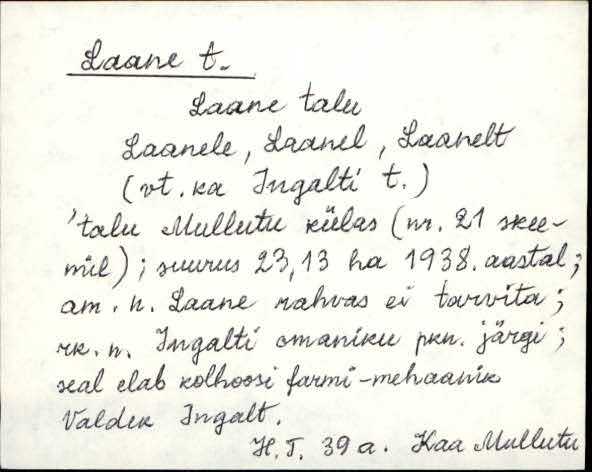 Laane t.
Laane talu
Laanele, Laanel, Laanelt
(vt. ka Ingalti t.)
'talu Mullutu külas (nr. 21 skee-
mil); suurus 23,13 ha 1938. aastal;
am. n. Laane rahvas ei tarvita;
rk. n. Ingalti omaniku pkn. järgi;
seal elab kolhoosi farmi-mehaanik
Valdek Ingalt.
H.T. 39 a. Kaa Mullutu